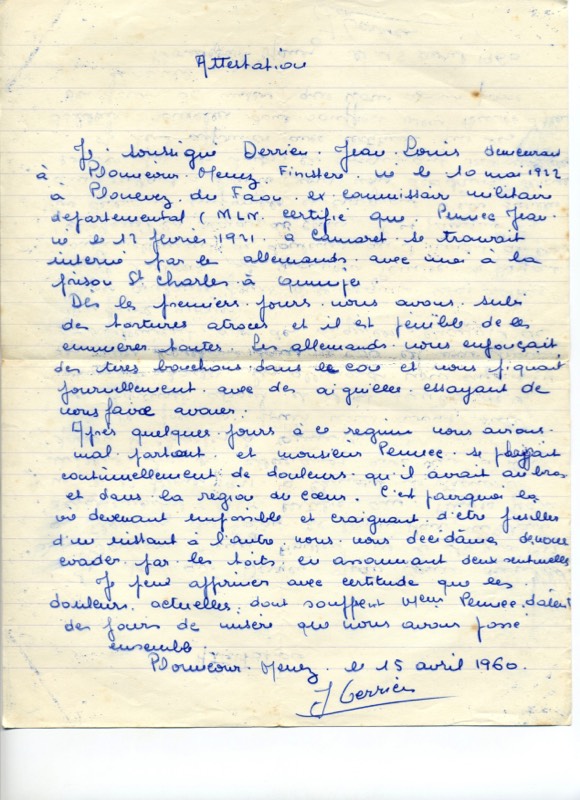 Attestation
Je soussigné Derrien Jean Louis demeurant
à Plounéour Menez Finistère né le 10 mai 1922
à Plonevez du Faou ex commissair militaire
départemental (M L N. certifie que Pennec Jean
né le 12 février 1921 a Camaret se trouvait
interné par les allemands avec moi à la
prison St Charles à
Dès les premiers jours nous avons subi
des tortures atroces et il est pénible de les
toutes. Les allemands nous enfonçait
des tires bouchons dans le cou et nous piquait
journellement avec des aiguilles essayant de
nous faire avouer.
Après quelques jours à ce regime nous avions
mal partout et monsieur Pennec se plaignait
continuellement de douleurs qu'il avait au bras
et dans la région du cœur. C'est pourquoi la
vie devenant impossible et craignant d'être fusilles
d'un instant à l'autre nous nous decidâmes de nous
evader par les toits en assommant deux sentinelles
Je peux affirmer avec certitude que les
douleurs actuelles dont souffrent Mr Pennec datent
des jours de misère que nous avons passé
ensemble
Plounéour Menez. le 15 avril 1960.
J Derrien